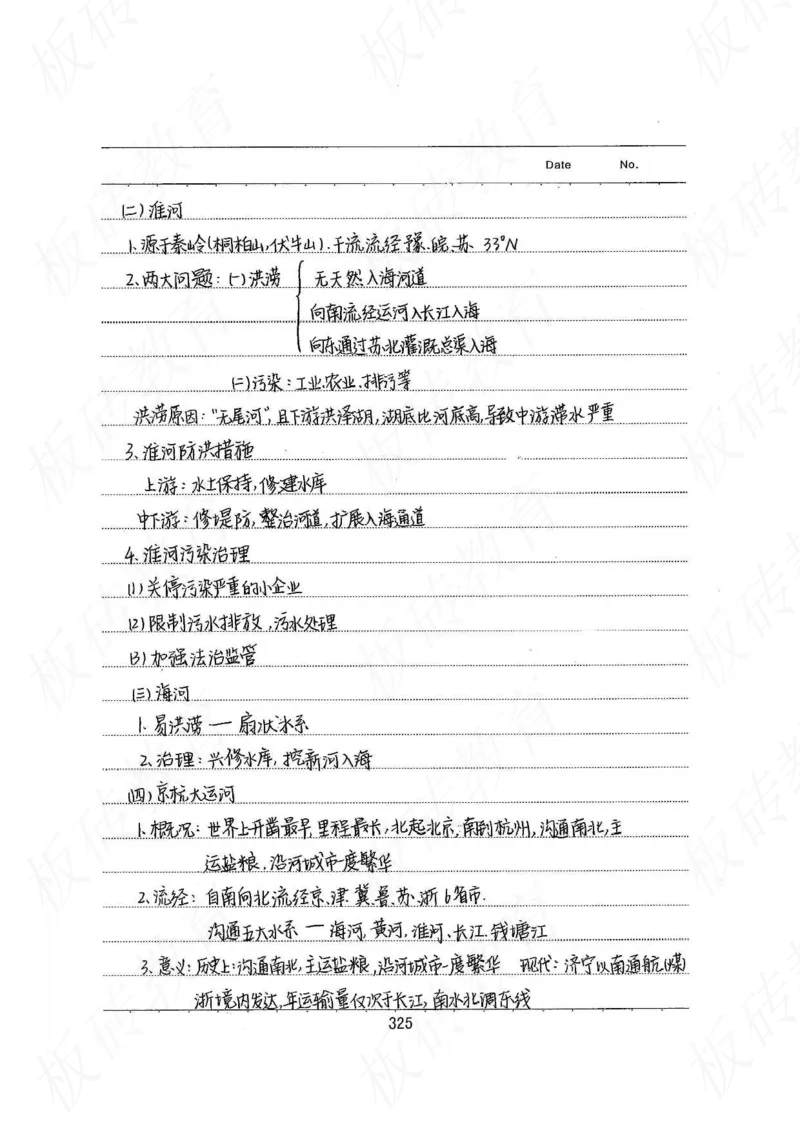 Date No.
(二)淮河
1、源于秦岭(桐柏山,伏牛山).干流流经豫、皖、苏、33°N
2、两大问题:(一)洪涝 无天然入海河道
向南流经运河入长江入海
向东通过苏北灌溉总渠入海
(二)污染:工业、农业、排污等
洪涝原因:"无尾河",且下游洪泽湖,湖底比河底高,导致中游滞水严重
3、淮河防洪措施
上游:水土保持,修建水库
中下游:修堤防,整治河道,扩展入海通道
4、淮河污染治理
(1)关停污染严重的小企业
(2)限制污水排放,污水处理
(3)加强法治监管
(三)海河
1、易洪涝一扇状水系
2、治理:兴修水库,挖新河入海
(四)京杭大运河
1、概况:世界上开凿最早,里程最长,北起北京,南到杭州,沟通南北,主
运盐粮,沿河城市一度繁华
2、流经:自南向北流经京、津、冀、鲁、苏、浙6省市.
沟通五大水系一海河、黄河、淮河、长江、钱塘江
3、意义:历史上:沟通南北,主运盐粮,沿河城市一度繁华 现代:济宁以南通航(煤)
浙境内发达,年运输量仅次于长江,南水北调东线
325
板砖教育